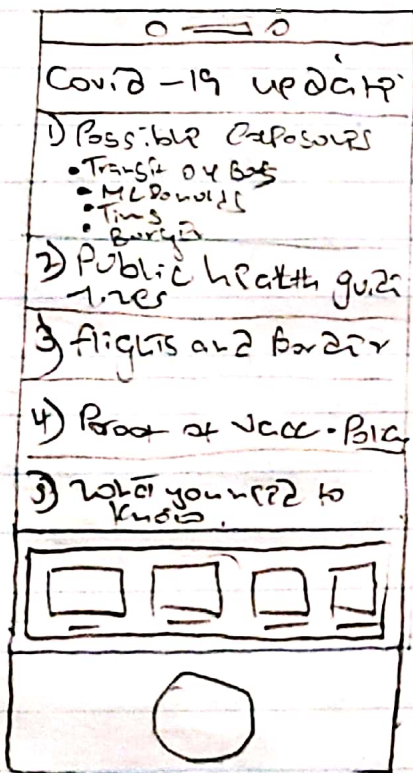 Covid-19 update
1) Possible Exposures
• Transit or Bus
• McDonalds
• Tims
•
2) Public health guide
lines
3) flights and Border
4) Proof of Vacc. Policy
5) What you need to
know.